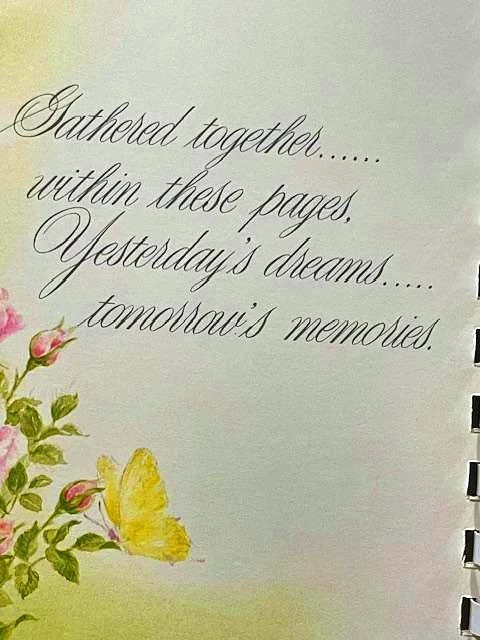 Gathered together......
within these pages,
Yesterday's dreams.....
tomorrow's memories.